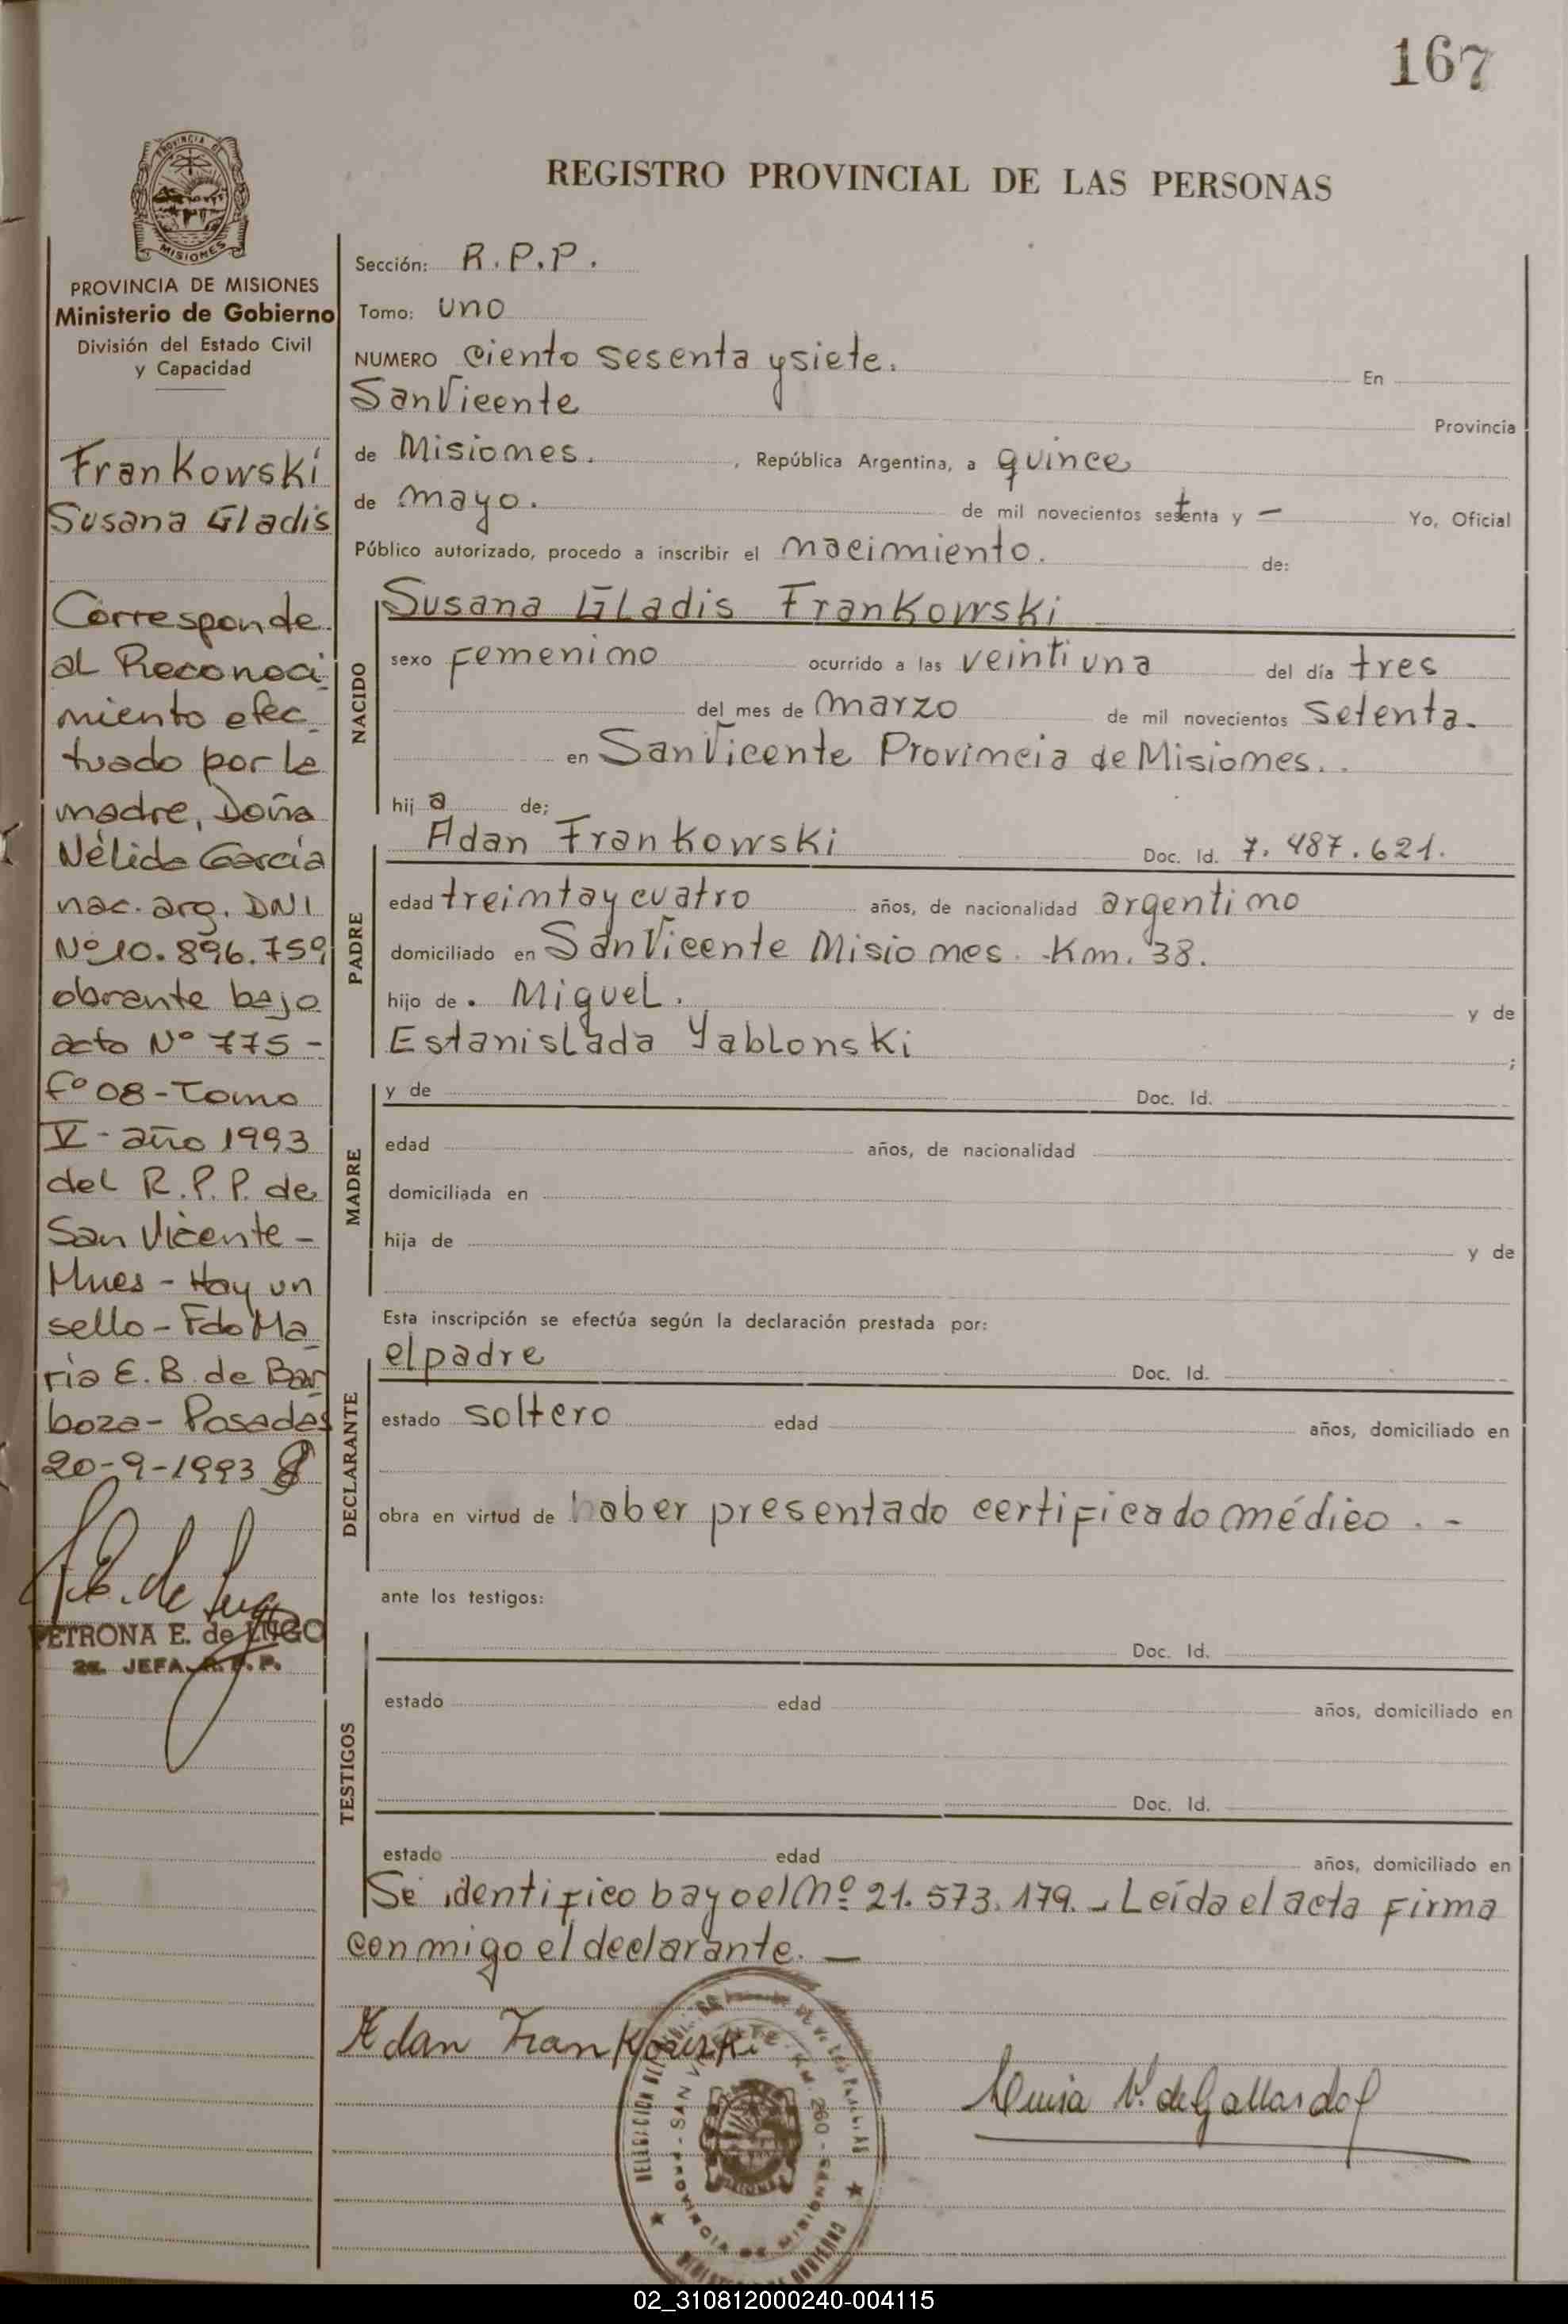 167
REGISTRO PROVINCIAL DE LAS PERSONAS
PROVINCIA DE
MISIONES
PROVINCIA DE MISIONES
Ministerio de Gobierno
División del Estado Civil
y Capacidad
Frankowski
Susana Gladis
Corresponde
al Reconoci-
miento efec-
tuado por la
madre, Doña
Nélida García
nac. arg. DNI
Nº 10.896.759
obrante bajo
acta Nº 775 -
fº 08 - Tomo
V - año 1993
del R.P.P. de
San Vicente -
Mnes - Hay un
sello - Fdo Ma
ria E. B. de Bar
boza - Posadas
20-9-1993
PETRONA E. de LUGO
2a. JEFA R.P.P.
Sección: R.P.P.
Tomo: uno
NUMERO ciento sesenta y siete. En
San Vicente Provincia
de Misiones. , República Argentina, a quince
de mayo. de mil novecientos setenta y — Yo, Oficial
Público autorizado, procedo a inscribir el nacimiento. de:
NACIDO
Susana Gladis Frankowski
sexo femenino ocurrido a las veintiuna del día tres
del mes de marzo de mil novecientos setenta.
en San Vicente Provincia de Misiones..
hij a de:
PADRE
Adan Frankowski Doc. Id. 7.487.621.
edad treinta y cuatro años, de nacionalidad argentino
domiciliado en San Vicente Misiones. Km. 38.
hijo de . Miguel. y de
Estanislada Yablonski ;
MADRE
y de Doc. Id.
edad años, de nacionalidad
domiciliada en
hija de y de
Esta inscripción se efectúa según la declaración prestada por:
DECLARANTE
el padre Doc. Id.
estado soltero edad años, domiciliado en
obra en virtud de haber presentado certificado médico. -
ante los testigos:
TESTIGOS
Doc. Id.
estado edad años, domiciliado en
Doc. Id.
estado edad años, domiciliado en
Se identifico bayo el Nº 21.573.179. - Leída el acta firma
conmigo el declarante. —
Adan Frankowski
Luisa V. de Gallardo
02_310812000240-004115